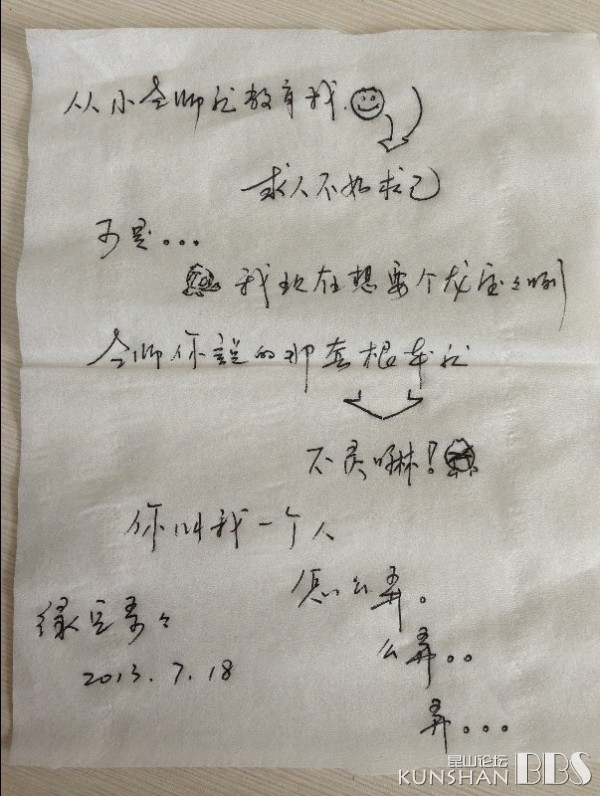 从小老师就教育我.
求人不如求己
可是...
我现在想要个龙宝々咧
老师你说的那套根本就
不灵啉!
你叫我一个人
怎么弄。
么弄。。
弄。。。
绿豆
2013.7.18
昆山论坛
KUNSHAN BBS